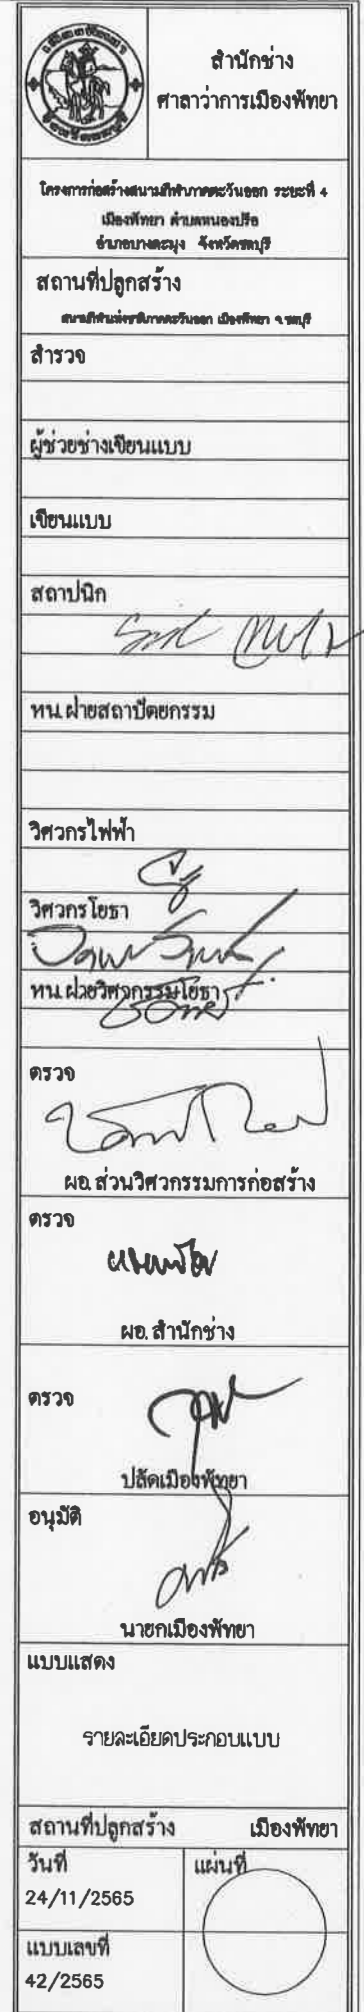 สำนักช่าง
ศาลาว่าการเมืองพัทยา
โครงการก่อสร้างสนามกีฬาภาคตะวันออก ระยะที่ 4
เมืองพัทยา ตำบลหนองปรือ
อำเภอบางละมุง จังหวัดชลบุรี
สถานที่ปลูกสร้าง
สนามกีฬาแห่งชาติภาคตะวันออก เมืองพัทยา จ.ชลบุรี
สำรวจ
ผู้ช่วยช่างเขียนแบบ
เขียนแบบ
สถาปนิก
หน.ฝ่ายสถาปัตยกรรม
วิศวกรไฟฟ้า
วิศวกรโยธา
หน.ฝ่ายวิศวกรรมโยธา
ตรวจ
ผอ.ส่วนวิศวกรรมการก่อสร้าง
ตรวจ
ผอ.สำนักช่าง
ตรวจ
ปลัดเมืองพัทยา
อนุมัติ
นายกเมืองพัทยา
แบบแสดง
รายละเอียดประกอบแบบ
สถานที่ปลูกสร้าง เมืองพัทยา
วันที่ แผ่นที่
24/11/2565
แบบเลขที่
42/2565